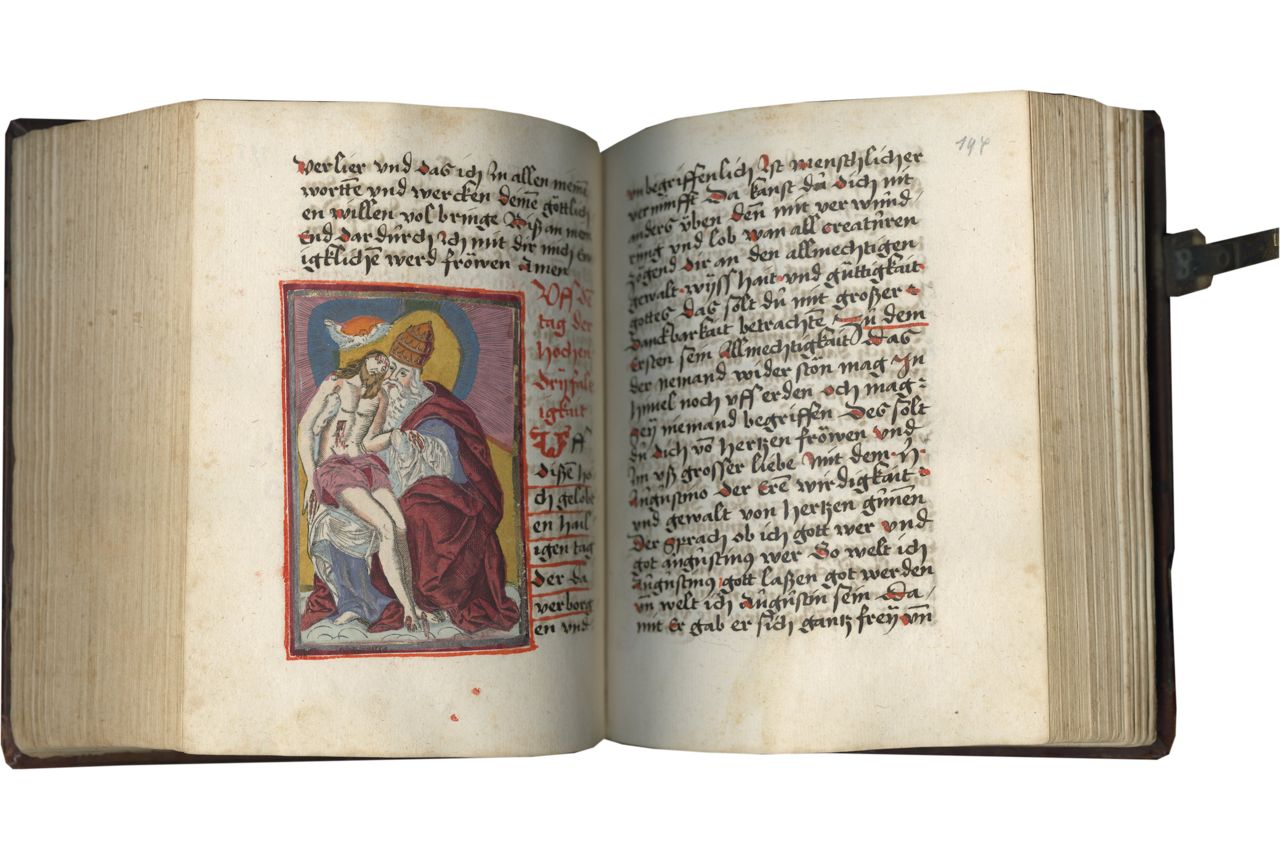 verlier vnd das ich In allen meinē
wortte vnd wercken deinē göttlich
en willen vol bringe Biß an mein
End dar dürch ich mit dir mich Ew
igklichē werd fröwen Amen
Vff dē
tag der
hochen
dryfalt
igkait
disē ho
ch gelobt
en hail
igen tag
der da
verborg
en vnd
194
vnbegriffenlich Ist menschlicher
vernunfft Da kanst dü dich nit
anders yben den̄ mit verwünd
rung vnd lob wan all creatüren
zögend dir an den allmechtigen
gewalt wyßhait vnd güttigkait
gottes das solt dü mit großer
danckbarkait betrachtē Zü dem
Ersten sein Allmechtigkait Das
der nemand wider stön mag In
himel noch vff erden och mag
sey niemand begriffen Des solt
dü dich vō hertzen fröwen vnd
Im vß grosser liebe mit dem H
Augüstino der Erē wirdigkait
vnd gewalt von hertzen günnen
der sprach ob ich gott wer vnd
got augüstinüs wer So welt ich
Aügüstinüs gott laßen got werden
vn̄ welt ich Aügüstin sein Da
mit Er gab er sich gantz frey vn̄